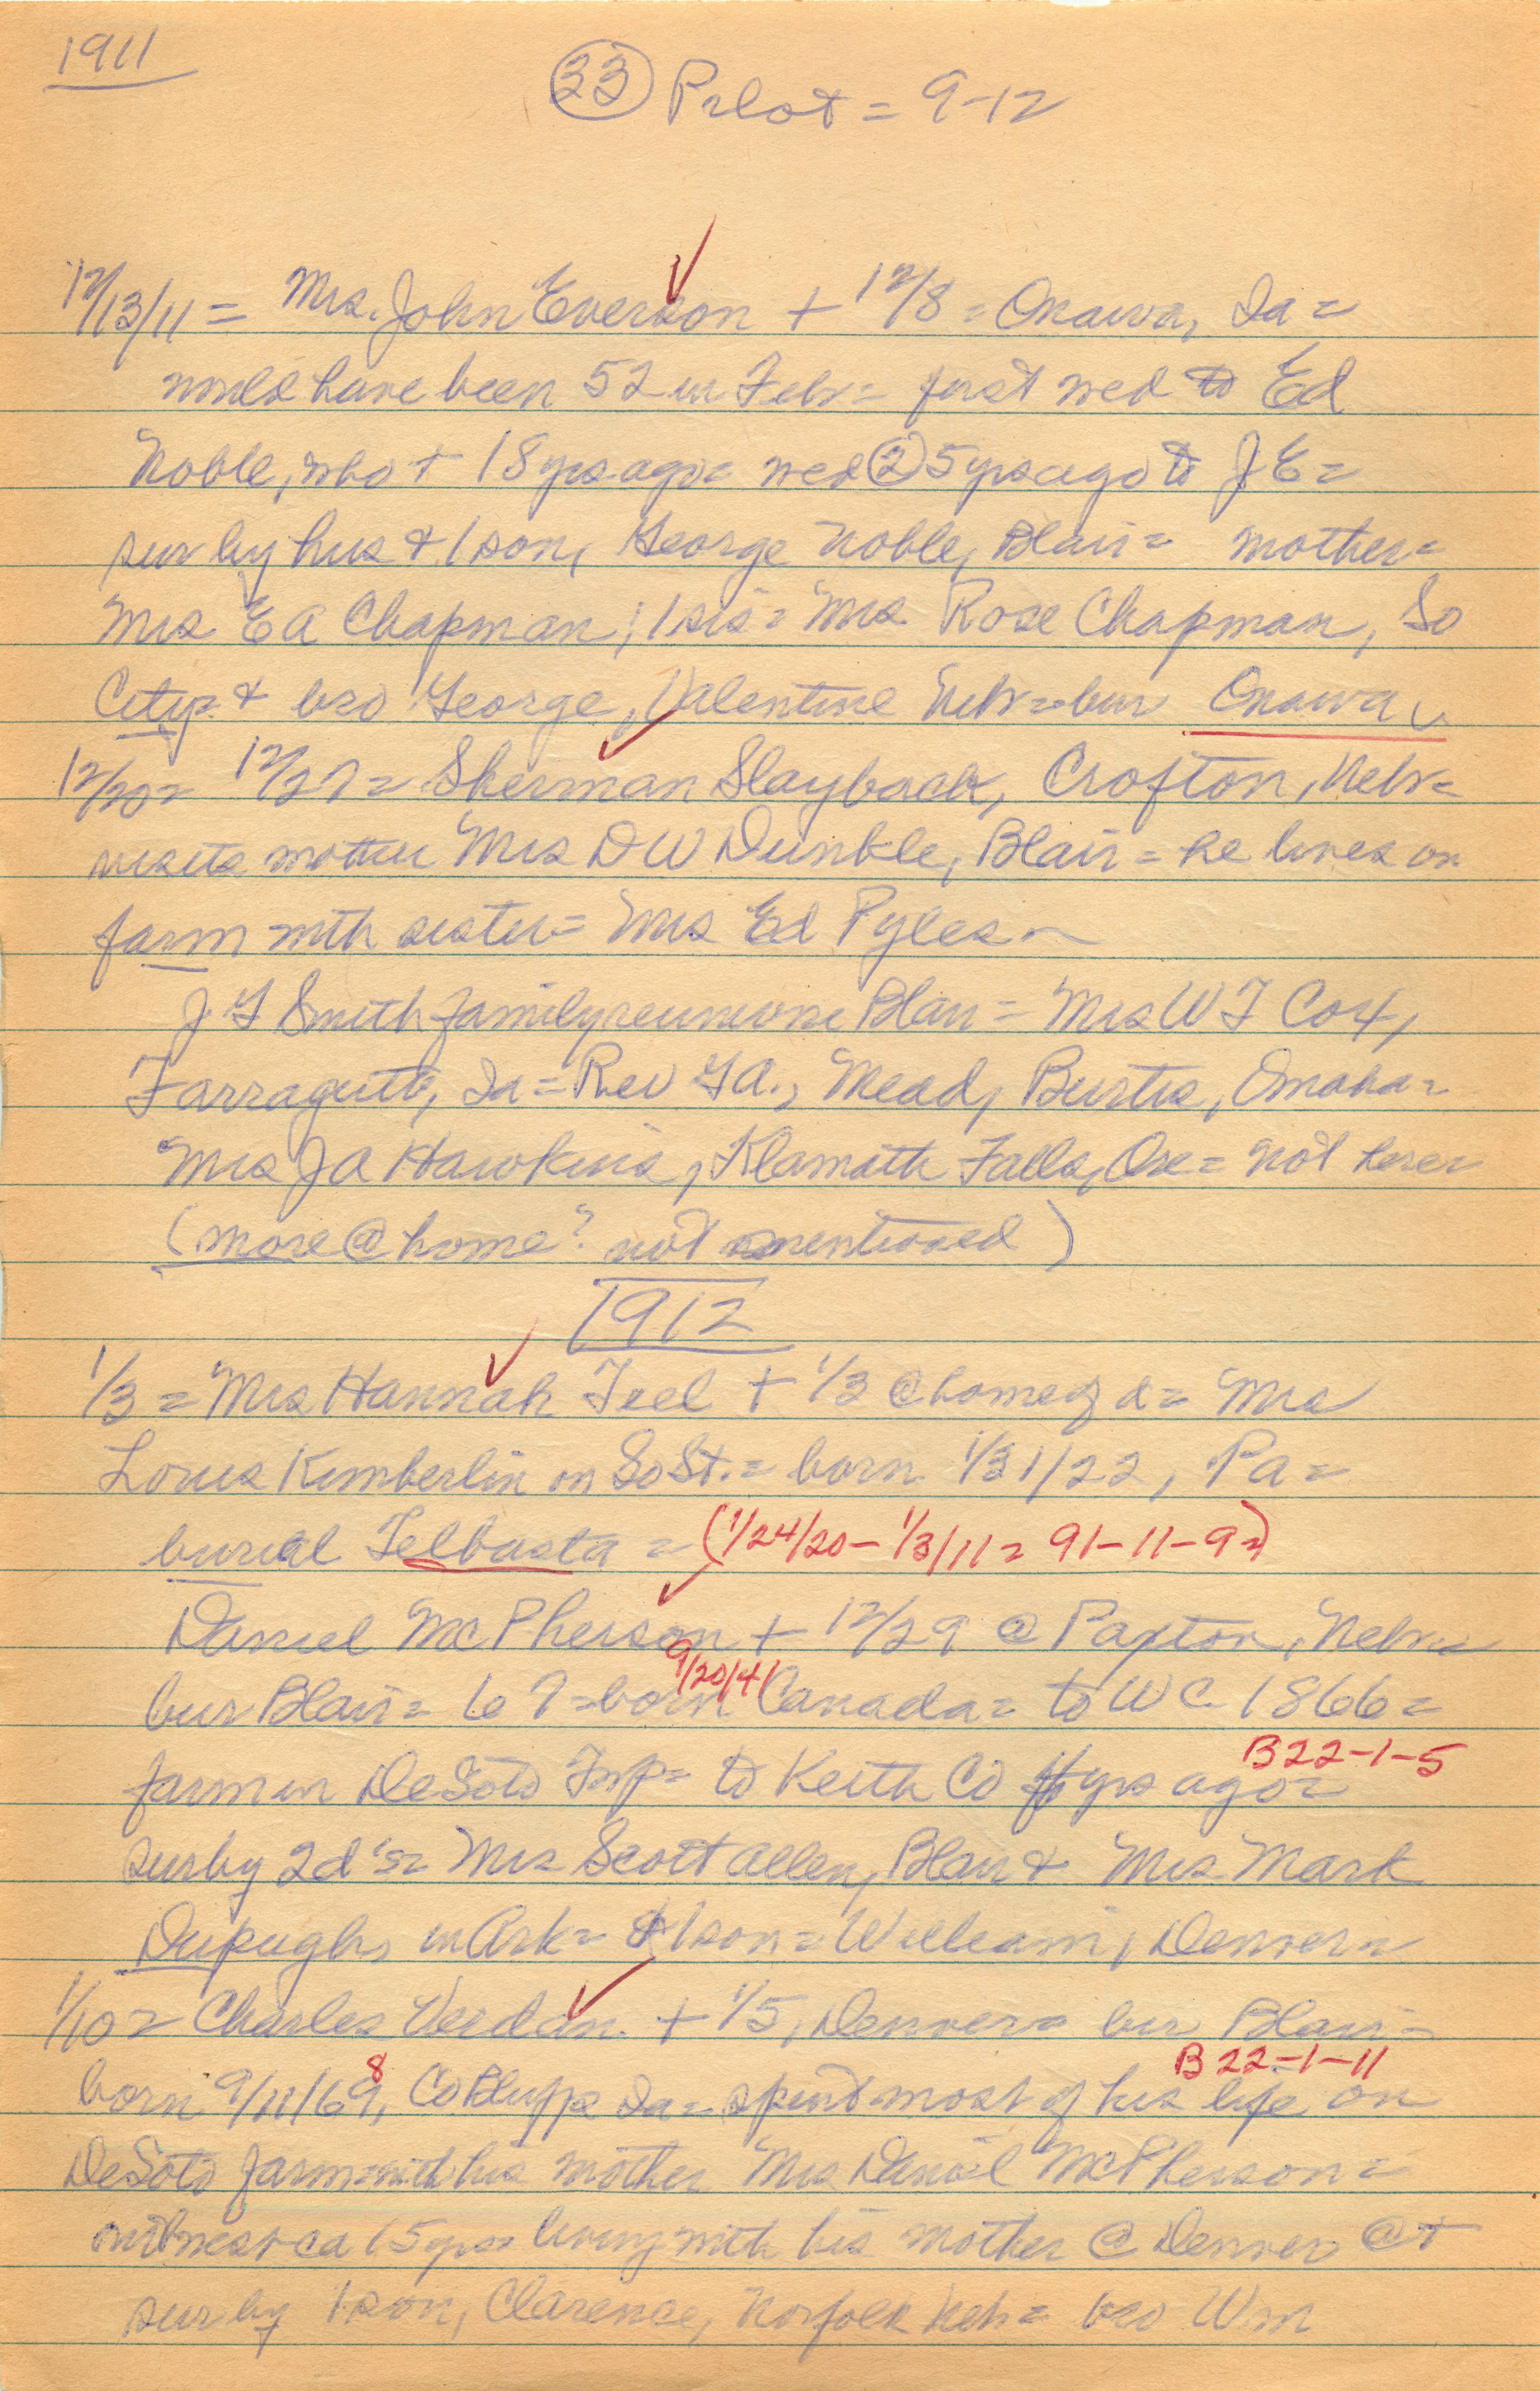 1911
(33) Pilot = 9-12
12/13/11 = Mrs. John Everson + 12/8 = Onawa, Ia =
would have been 52 in Feb = first wed to Ed
Noble, who + 18 yrs ago = wed (2) 5 yrs ago to J E =
sur by hus & 1 son, George Noble, Blair = mother =
Mrs E A Chapman; 1 sis = Mrs Rose Chapman, So
City = & bro George, Valentine Neb = bur Onawa
12/20 = 12/27 = Sherman Slayback, Crofton, Neb =
visits mother Mrs D W Dunkle, Blair = he lives on
farm with sister = Mrs Ed Pyles
J G Smith family reunion Blair = Mrs W F Cox,
Farragut, Ia = Rev G A., Mead, Burtis, Omaha =
Mrs J A Hawkins, Klamath Falls, Ore = not here
(more @ home? not mentioned)
1912
1/3 = Mrs Hannah Teel + 1/3 @ home of d = Mrs
Louis Kimberlin on So St. = born 1/31/22, Pa =
burial Telbasta = (1/24/20 - 1/3/11 = 91-11-9 =)
Daniel McPherson + 12/29 @ Paxton, Neb =
9/20/41
bur Blair = 67 = born Canada = to W C 1866 =
B22-1-5
farm in DeSoto Twp = to Keith Co yrs ago =
sur by 2 d's = Mrs Scott Allen, Blair & Mrs Mark
Dupugh, in Ark = & 1 son = William, Denver =
1/10 = Charles Verdan + 1/5, Denver = bur Blair =
8 B 22-1-11
born 9/11/69, Co Bluffs Ia = spent most of his life on
DeSoto farm = with his mother Mrs Daniel McPherson =
out west ca 15 yrs = living with his mother @ Denver @ +
sur by 1 son, Clarence, Norfolk Neb = bro Wm